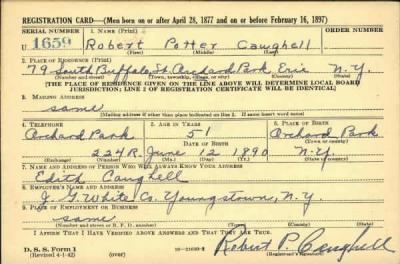 REGISTRATION CARD—(Men born on or after April 28, 1877 and on or before February 16, 1897)
SERIAL NUMBER 1. NAME (Print) ORDER NUMBER
U 1659 Robert Potter Caughell
(First) (Middle) (Last)
2. PLACE OF RESIDENCE (Print)
79 South Buffalo St. Orchard Park, Erie N.Y.
(Number and street) (Town, township, village, or city) (County) (State)
[THE PLACE OF RESIDENCE GIVEN ON THE LINE ABOVE WILL DETERMINE LOCAL BOARD
JURISDICTION; LINE 2 OF REGISTRATION CERTIFICATE WILL BE IDENTICAL]
3. MAILING ADDRESS
same
[Mailing address if other than place indicated on line 2. If same insert word same]
4. TELEPHONE 5. AGE IN YEARS 6. PLACE OF BIRTH
Orchard Park 51 Orchard Park
DATE OF BIRTH (Town or county)
224R June 12 1890 N.Y.
(Exchange) (Number) (Mo.) (Day) (Yr.) (State or country)
7. NAME AND ADDRESS OF PERSON WHO WILL ALWAYS KNOW YOUR ADDRESS
Edith Caughell
8. EMPLOYER'S NAME AND ADDRESS
J. G. White Co. Youngstown, N.Y.
9. PLACE OF EMPLOYMENT OR BUSINESS
same
(Number and street or R. F. D. number) (Town) (County) (State)
I AFFIRM THAT I HAVE VERIFIED ABOVE ANSWERS AND THAT THEY ARE TRUE.
D. S. S. Form 1
(Revised 4-1-42) (over) Robert P. Caughell
(Registrant's signature)